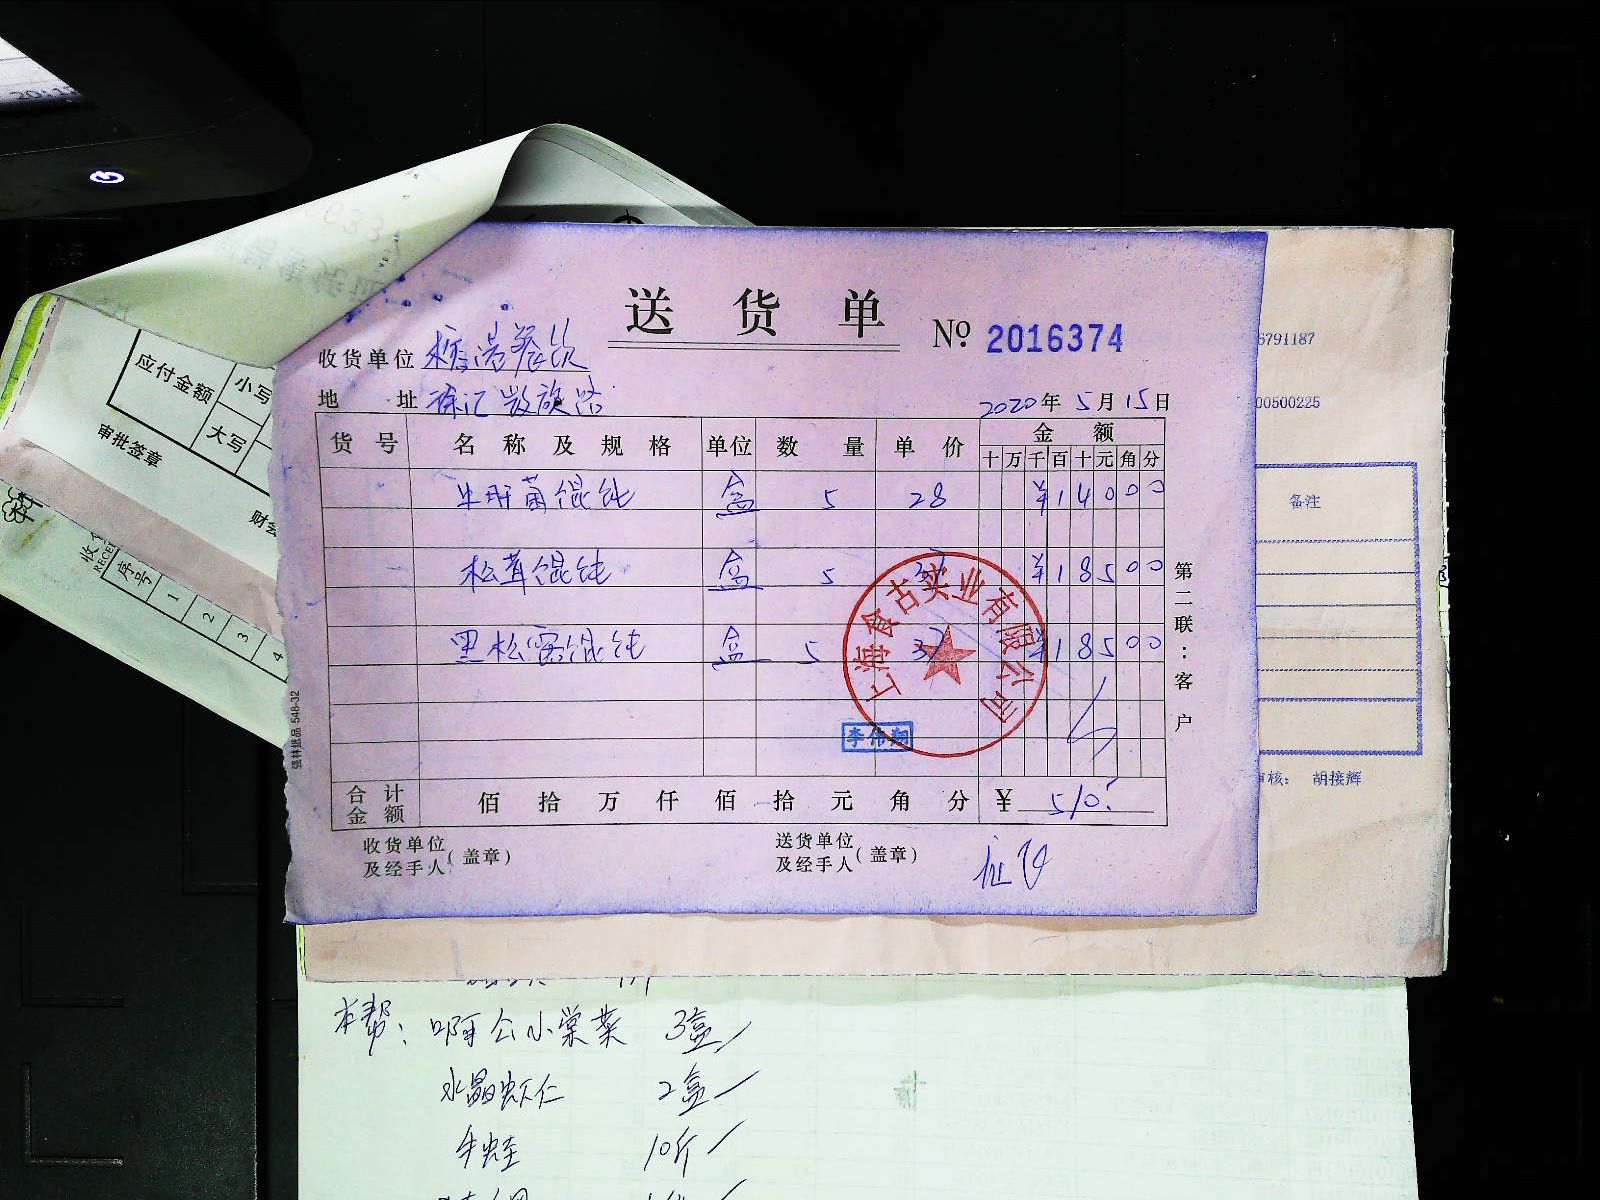 送货单 № 2016374
收货单位
地址 徐汇
2020年5月15日
货号 名称及规格 单位 数量 单价 金额
十万千百十元角分
牛肝菌馄饨 盒 5 28 ¥14000
松茸馄饨 盒 5 37 ¥18500
黑松露馄饨 盒 5 37 ¥18500
上海食古实业有限公司
李伟翔
合计金额 佰拾万仟佰拾元角分 ¥510
收货单位及经手人(盖章)
送货单位及经手人(盖章)
第二联:客户
强林纸品 548-32
应付金额 小写
大写
审批签章
财会
序号
1
2
3
4
6791187
00500225
备注
审核: 胡接辉
本帮: 啊公小棠菜 3盒
水晶虾仁 2盒
牛蛙 10斤